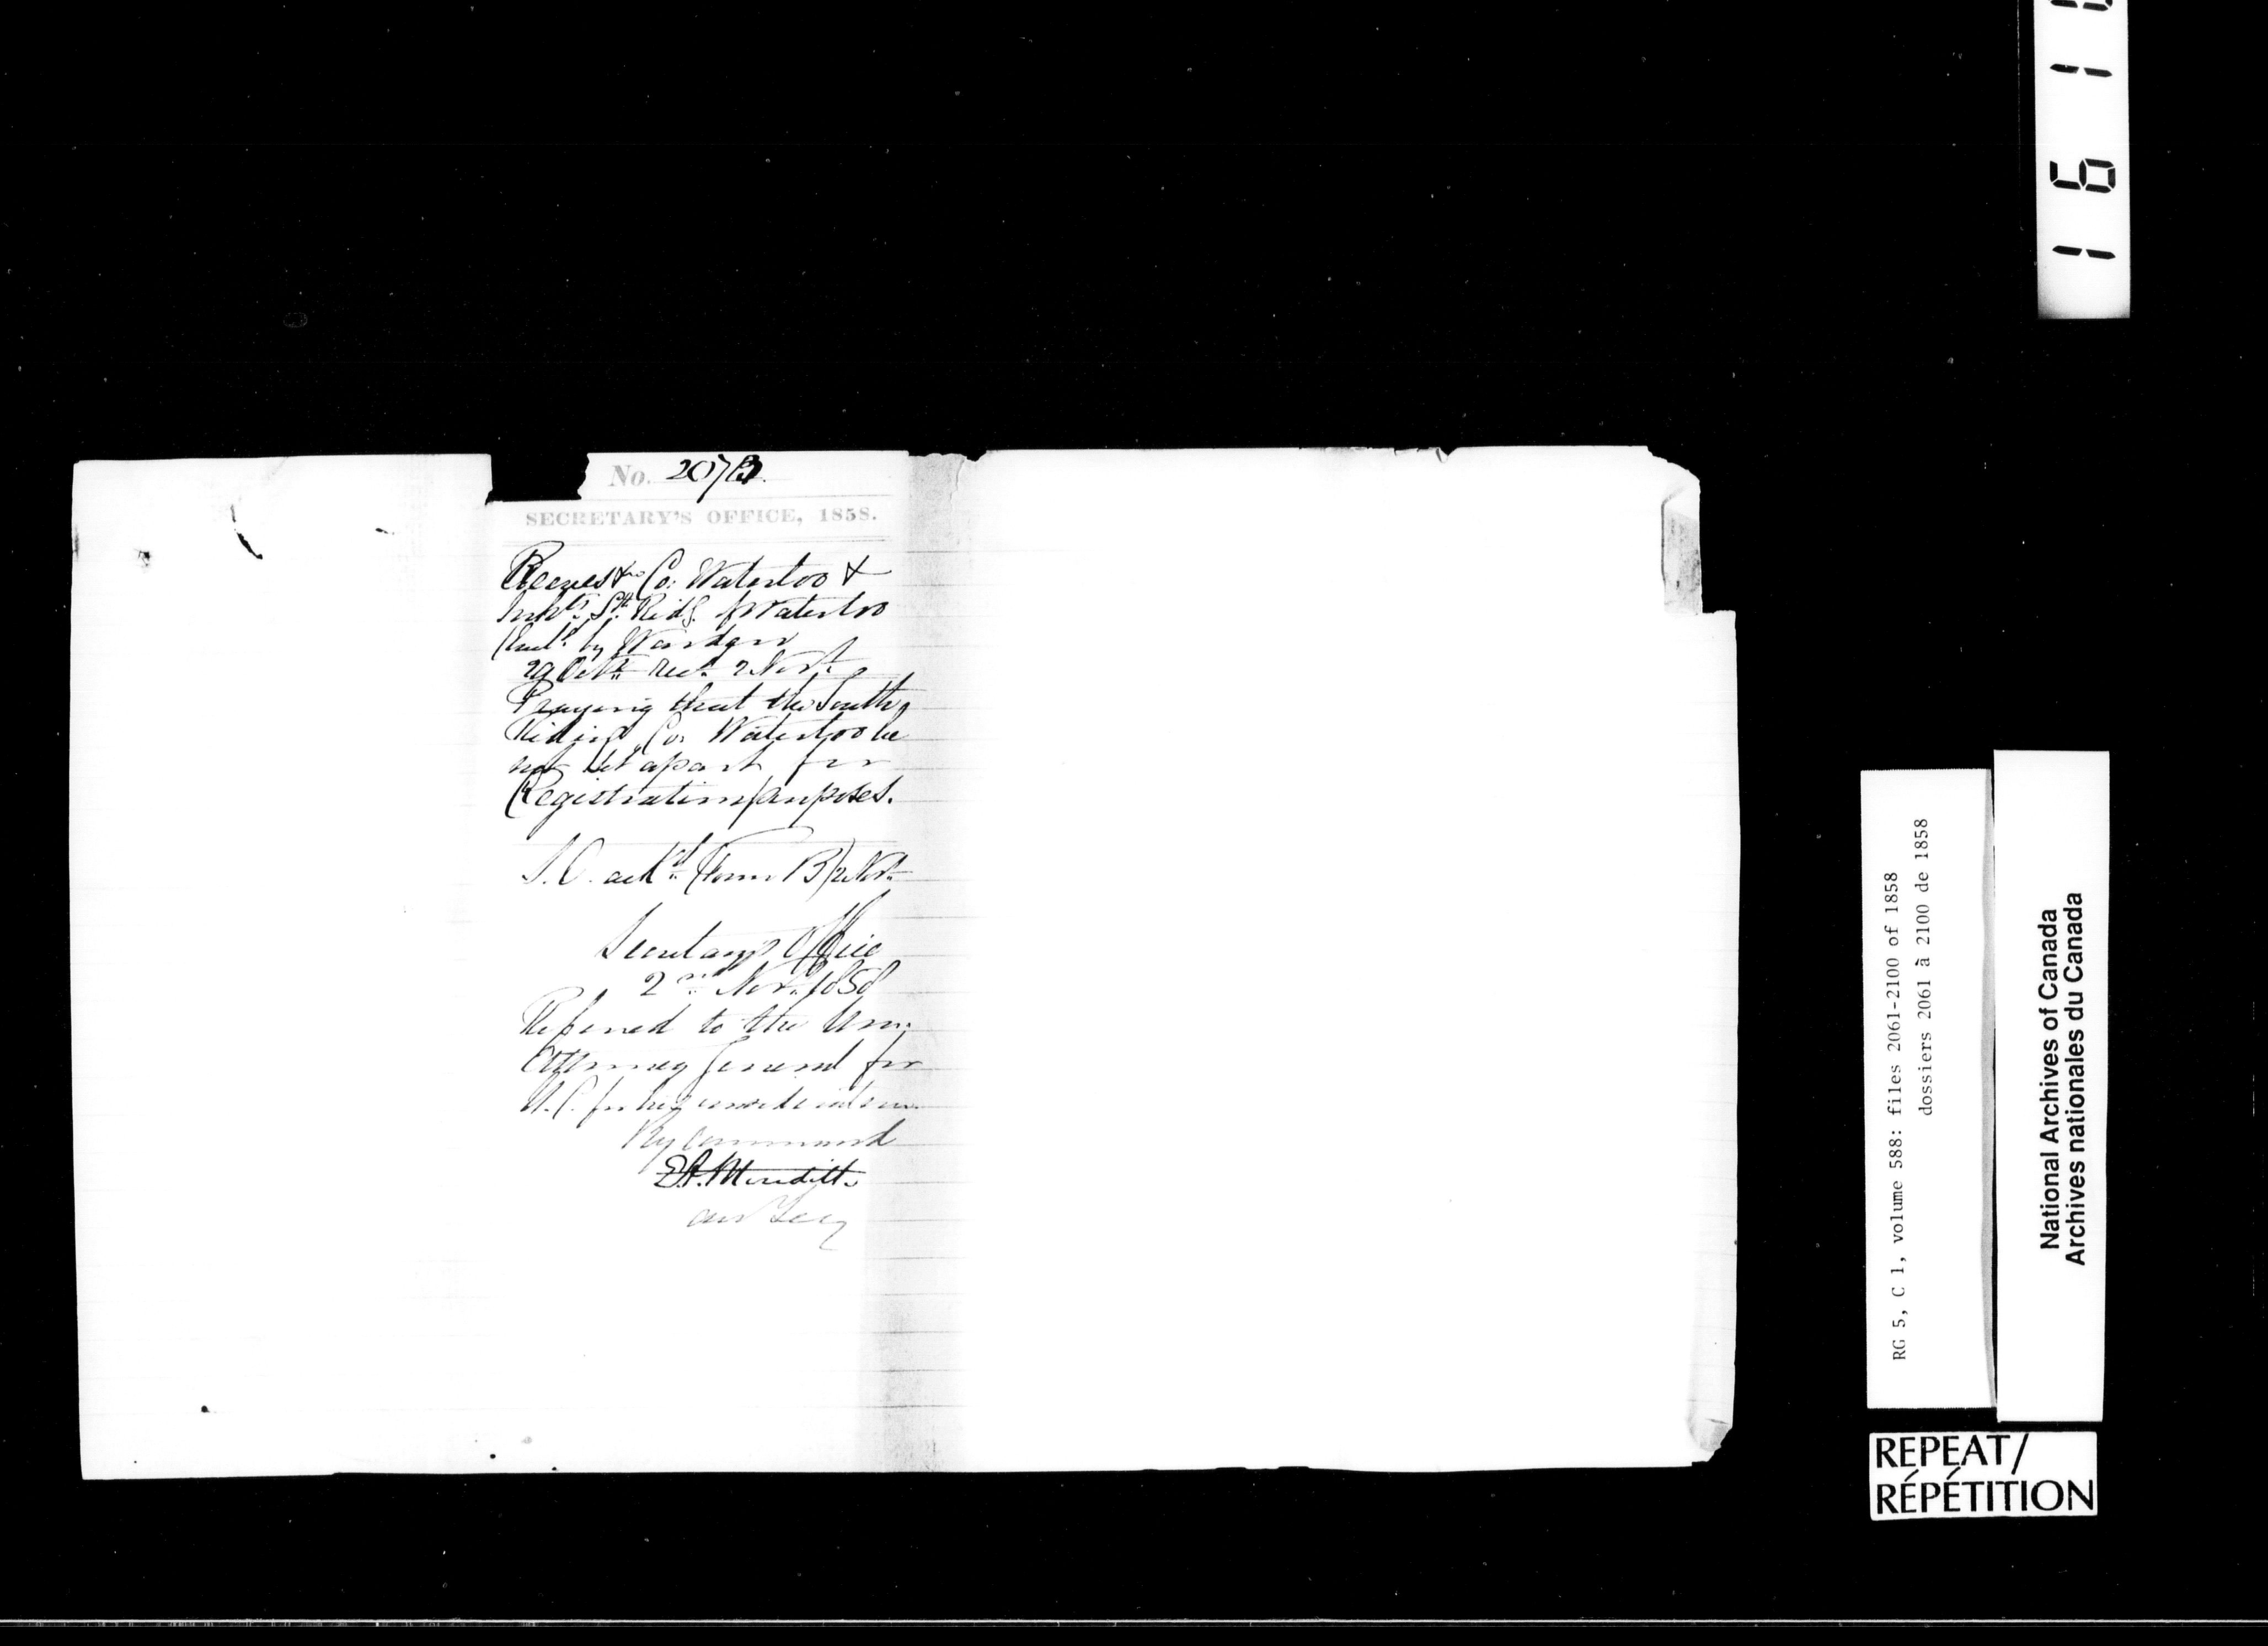 No. 2073.
SECRETARY'S OFFICE, 1858.
Reeves &c Co: Waterloo &
Inhts. Sth. Ridg. Waterloo
by Warden
29 Octr. Recd. 2 Novr.
Praying that the South
Riding Co: Waterloo be
not set apart for
Registration purposes.
ackd. (Form B) 2 Novr.
Secretarys Office
2nd Novr. 1858
Referred to the Hon.
Attorney General for
U.C. for his consideration
By Command
E.A. Meredith
Asst Secy
RG 5, C 1, volume 588: files 2061-2100 of 1858
dossiers 2061 à 2100 de 1858
National Archives of Canada
Archives nationales du Canada
REPEAT/
RÉPÉTITION